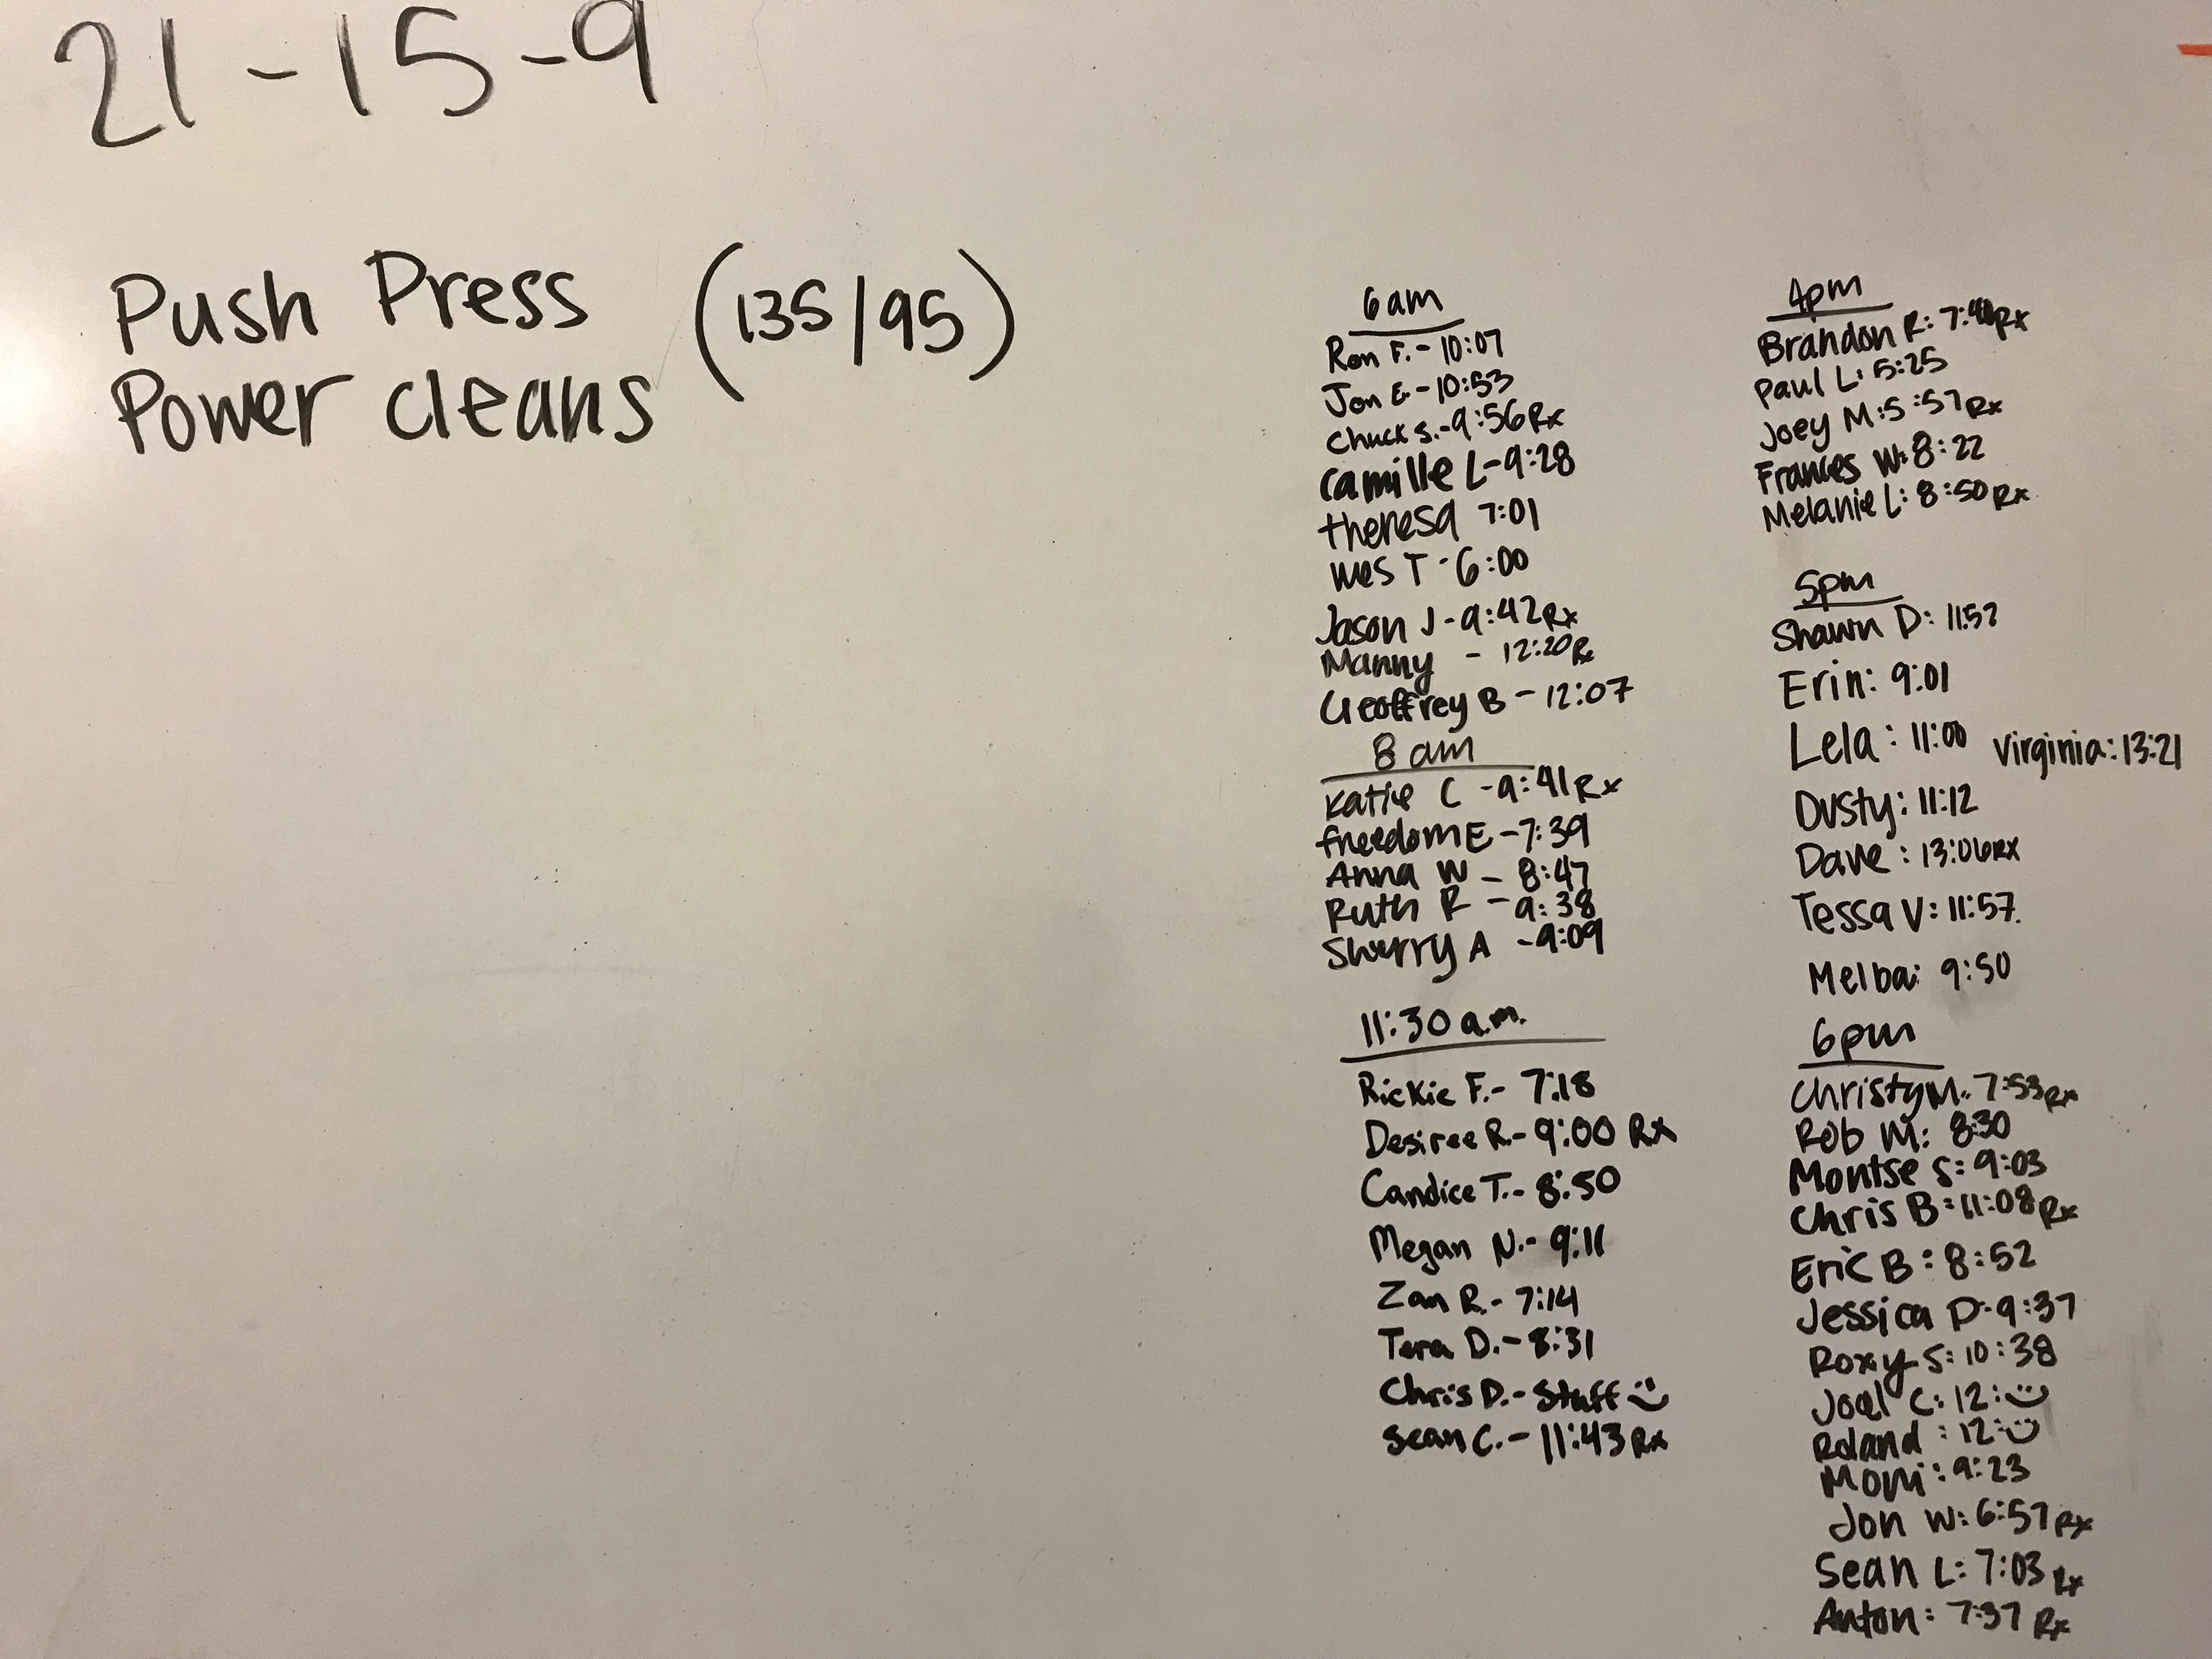 21-15-9
Push Press (135/95)
Power cleans
6am
Ron F. - 10:07
Jon E - 10:53
Chuck S. - 9:56 Rx
Camille L - 9:28
theresa 7:01
Wes T - 6:00
Jason J - 9:42 Rx
Manny - 12:20 Rx
Geoffrey B - 12:07
8 am
Katie C - 9:41 Rx
freedom E - 7:39
Anna W - 8:47
Ruth R - 9:38
Sherry A - 9:09
11:30 a.m.
Rickie F. - 7:18
Desiree R. - 9:00 Rx
Candice T. - 8:50
Megan N. - 9:11
Zan R. - 7:14
Tera D. - 8:31
Chris D. - Staff
Sean C. - 11:43 Rx
4pm
Brandon R: Rx
Paul L: 5:25
Joey M: 5:57 Rx
Frances W: 8:22
Melanie L: 8:50 Rx
5pm
Shawn D:
Erin: 9:01
Lela: 11:00 Virginia: 13:21
Dusty: 11:12
Dave: 13:06 RX
Tessa V: 11:57
Melba: 9:50
6pm
Christy M: 7:53 Rx
Rob M: 8:30
Montse S: 9:03
Chris B: 11:08 Rx
Eric B: 8:52
Jessica D - 9:37
Roxy S: 10:38
Joel C: 12:
Roland: 12:
Moni: 9:23
Jon W: 6:57 Rx
Sean L: 7:03 Rx
Anton: 7:37 Rx